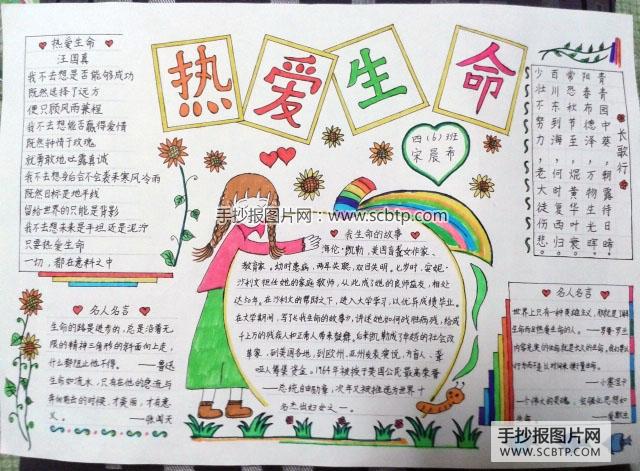 热爱生命
热爱生命
汪国真
我不去想是否能够成功
既然选择了远方
便只顾风雨兼程
我不去想能否赢得爱情
既然钟情于玫瑰
就勇敢地吐露真诚
我不去想身后会不会袭来寒风冷雨
既然目标是地平线
留给世界的只能是背影
我不去想未来是平坦还是泥泞
只要热爱生命
一切,都在意料之中
四(6)班
宋晨希
长歌行
青青园中葵,朝露待日晞
阳春布德泽,万物生光辉
常恐秋节至,焜黄华叶衰
百川东到海,何时复西归
少壮不努力,老大徒伤悲
手抄报图片网:www.scbtp.com
我生命的故事
海伦·凯勒,美国盲聋女作家、
教育家。幼时患病,两耳失聪,双目失明。七岁时,安妮·
沙利文担任她的家庭教师,从此成了她的良师益友,相处
达50年。在沙利文的帮助下,进入大学学习,以优异成绩毕业。
在大学期间,写了《我生命的故事》,讲述她如何战胜病残,给成
千上万的残疾人和正常人带来鼓舞。
到美国各地,到欧州、亚州发表演说,为盲人、聋
哑人筹集资金。1964年被授予美国公民最高荣誉
——总统自由勋章,次年又被推选为世界十
名杰出妇女之一。
名人名言
生命的路是进步的,总是沿着无
限的精神三角形的斜面向上走,
什么都阻止他不得。——鲁迅
生命如流水,只有在他的急流与
奔向前去的时候,才美丽,才有意
义。——张闻天
名人名言
世界上只有一种英雄主义,那就是了解
生命而且热爱生命的人。——罗曼·罗兰
——小塞涅卡
——爱默生
手抄报图片网
WWW.SCBTP.COM